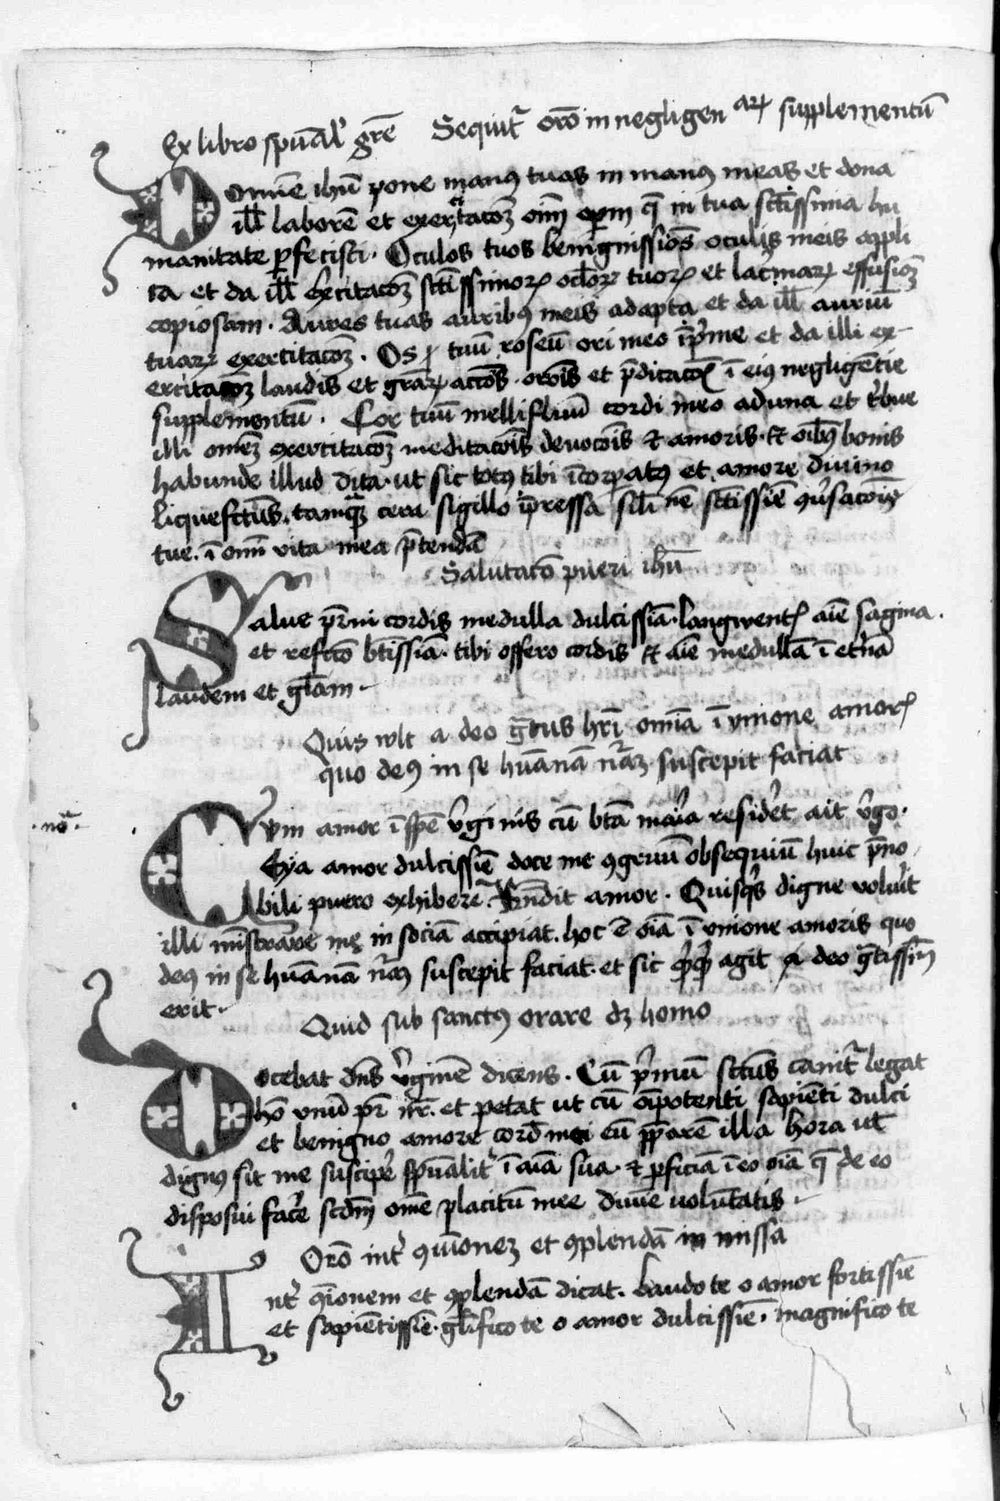 Ex libro spūal' grē Sequit̄ orō in negligenarꝝ supplementū
Domīe ihū pone manꝰ tuas in manꝰ meas et dona
ill' laborē et exercitacōꝫ oīm opm̄ q̄ in tua sctīssima hu
manitate ꝑfecisti. Oculos tuos benignissiōs oculis meis appli
ca et da ill' excitacōꝫ sctīssimorꝝ oclorꝝ tuorꝝ et lacrimarꝝ effusionꝫ
copiosam. Aures tuas auribꝰ meis adapta et da ill' auriū
tuarꝝ exercitacōꝫ. Os tuū roseū ori meo īprime et da illi ex-
ercitacōꝫ laudis et grarꝝ actōis orōis et p̄dicacōis ī eiꝰ negligētie
supplementū. Cor tuū mellifluū cordi meo aduna et tribue
illi omēꝫ exercitacōꝫ meditacōis deuocōis et amoris. et oībꝰ bonis
habunde illud dita. ut sic totꝰ tibi īcorꝑatꝰ et amore diuino
liquefctūs. tamqꝫ cera sigillo īpressa sīlīne sctīssīe ꝯūsacōnis
tue. ī omī vita mea p̄tendā
Salutacō pueri ihū
Salue pr̄ni cordis medulla dulcissīa. langwentꝭ aīe sagina.
et refcō btīssīa. tibi offero cordis et aīe medullā ī et̄nā
laudem et gl̄am
Quis wlt a deo grātus hrī omīa ī vnione amorꝭ
quo deꝰ in se huānā nr̄aꝫ suscepit faciat
.nō.
Cvm amor ī spē v̄ginis cū btā maria resideret ait v̄go.
Eya amor dulcissīe doce me ꝯgruū obsequiū huic p̄no
bili puero exhibere. Rn̄dit amor. Quisqꝫ digne voluit
illi mīstrare me in sociā accipiat. hoc ē oīa ī vnione amoris quo
deꝰ in se huānā nr̄aꝫ suscepit faciat. et sic qꝫqꝫ agit a deo gr̄tissīm
erit.
Quid sub sanctꝰ orare dꝫ homo
Docebat dn̄s v̄ginē dicens. Cū prīmū sctūs canit̄ legat
hō vnū pr̄ nr̄. et petat ut cū oīpotenti sapiēti dulci
et benigno amore cord' mei eū p̄parē illa hora ut
dignꝰ sit me suscipere spūalit̄ ī aīa sua. et ꝑficiā ī eo oīa q̄ de eo
disposui facere scdm̄ omē placitū mee diuīe uolūtatis
Orō int̄ ꝯīonez et ꝯplendā in missa
Int̄ ꝯīonem et ꝯplendā dicat. Laudo te o amor fortissīe
et sapiētissīe. gl̄ifico te o amor dulcissīe. magnifico te